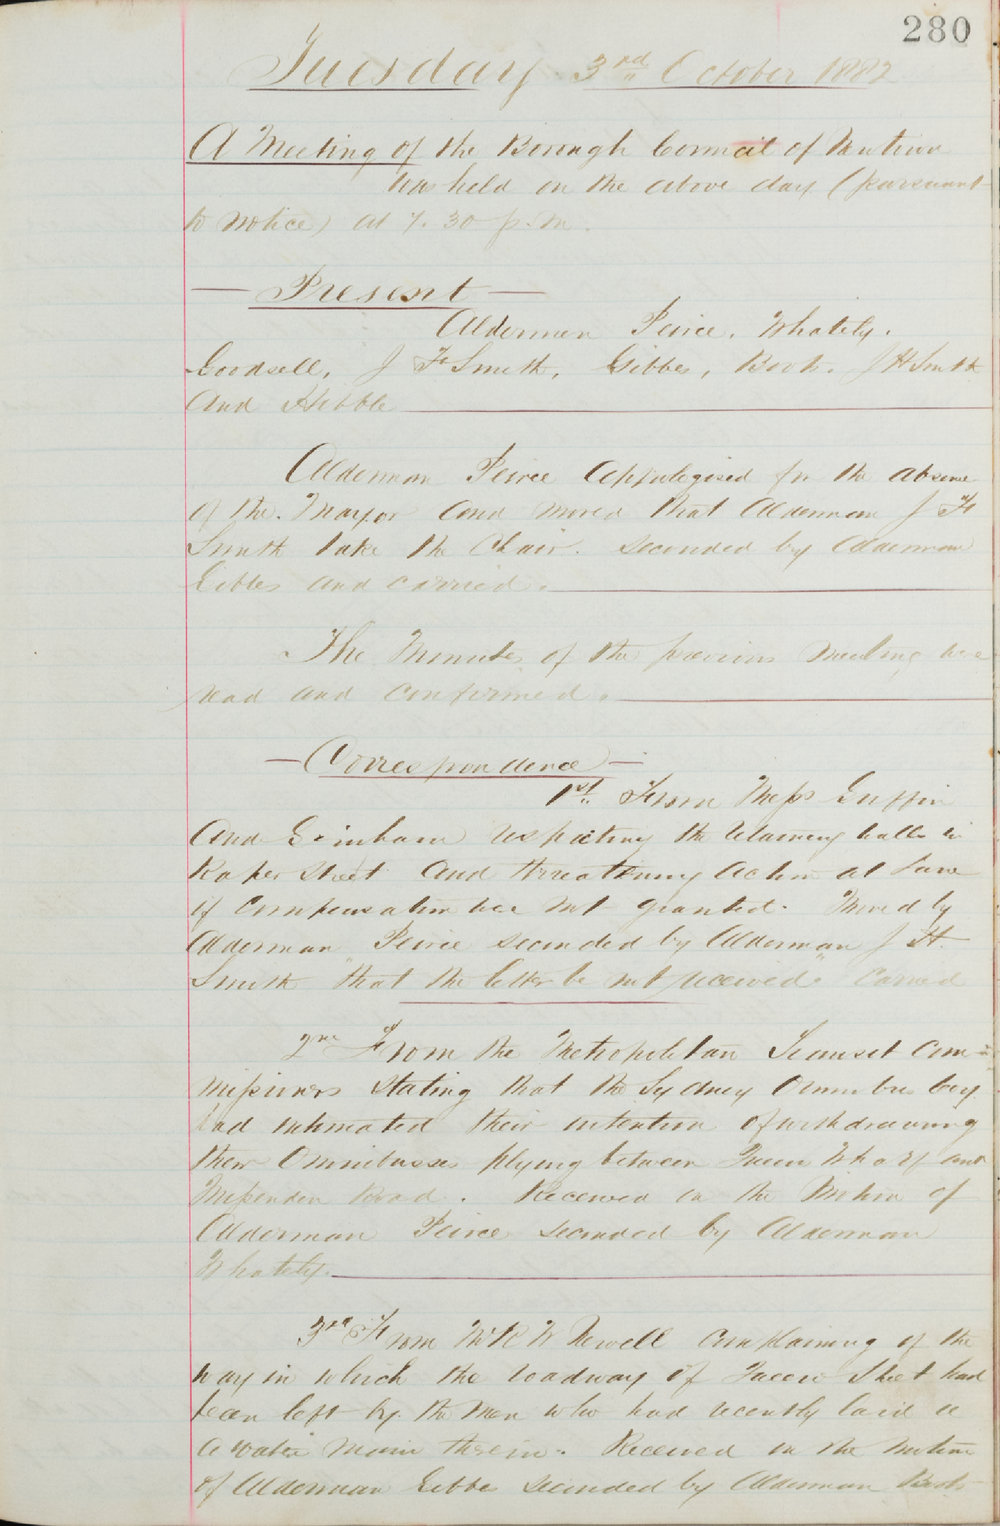 280
Tuesday 3rd October 1882
A Meeting of the Borough Council of
was held on the above day (pursuant
to notice) at 7.30 p.m.
Present
Aldermen Peirce, Whately,
Goodsell, J F Smith, Gibbes, J H Smith
and Hebble
Alderman Peirce appologised for the absence
of the Mayor and moved that Alderman J F
Smith take the Chair. seconded by Alderman
Gibbes and carried.
The Minutes of the previous Meeting were
read and confirmed.
Correspondence
1st. From Messrs
And respecting the retaining walls in
Raper Street and threatening action at Law
if compensation was not granted. Moved by
Alderman Peirce seconded by Alderman J H.
Smith "that the letter be not received." Carried
2nd From the Metropolitan Transit Com=
missioners stating that the Sydney Omnibus Coy
had intimated their intention of withdrawing
their Omnibusses plying between Queen Wharf and
Missenden Road. Received on the Motion of
Alderman Peirce seconded by Alderman
Whately.
3rd From Mr R W Newell complaining of the
way in which the roadway of Queen Street had
been left by the Men who had recently laid a
a water main therein. Received on the motion
of Alderman Gibbes seconded by Alderman